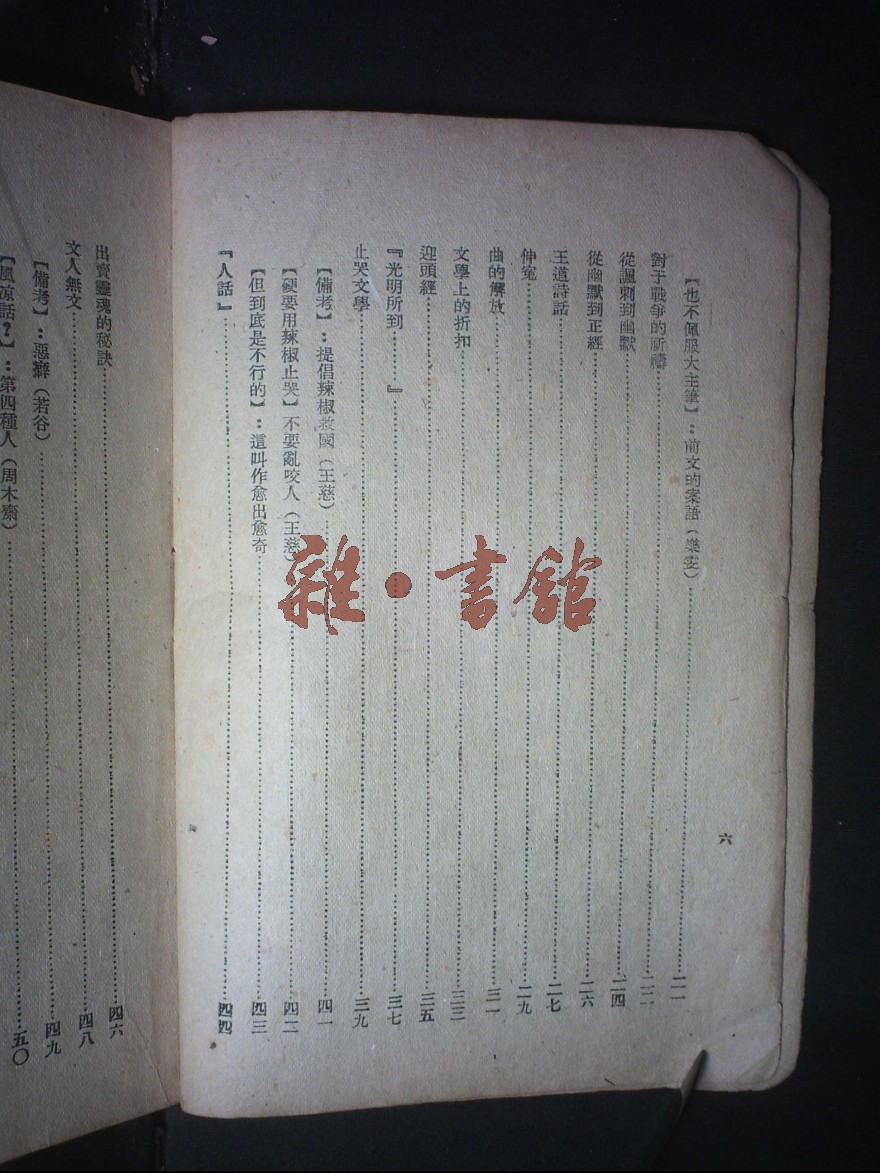 六
【也不佩服大主筆】：前文的案語（樂雯）⋯⋯二一
對于戰爭的祈禱⋯⋯二二
從諷刺到幽默⋯⋯二四
從幽默到正經⋯⋯二六
王道詩話⋯⋯二七
伸冤⋯⋯二九
曲的解放⋯⋯三一
文學上的折扣⋯⋯三三
迎頭經⋯⋯三五
『光明所到⋯⋯』⋯⋯三七
止哭文學⋯⋯三九
【備考】：提倡辣椒救國（王慈）⋯⋯四一
【硬要用辣椒止哭】不要亂咬人（王慈）⋯⋯四二
【但到底是不行的】：這叫作愈出愈奇⋯⋯四三
『人話』⋯⋯四四
出賣靈魂的秘訣⋯⋯四六
文人無文⋯⋯四八
【備考】：惡癖（若谷）⋯⋯四九
【風涼話？】：第四種人（周木齋）⋯⋯五〇
雜·書館